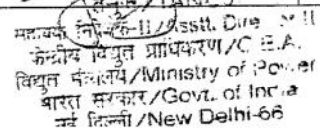 सहायक निदेशक-II/Asstt. Dire
केन्द्रीय विद्युत प्राधिकरण/C.E.A.
विद्युत मंत्रालय/Ministry of Power
भारत सरकार/Govt. of India
नई दिल्ली/New Delhi-66